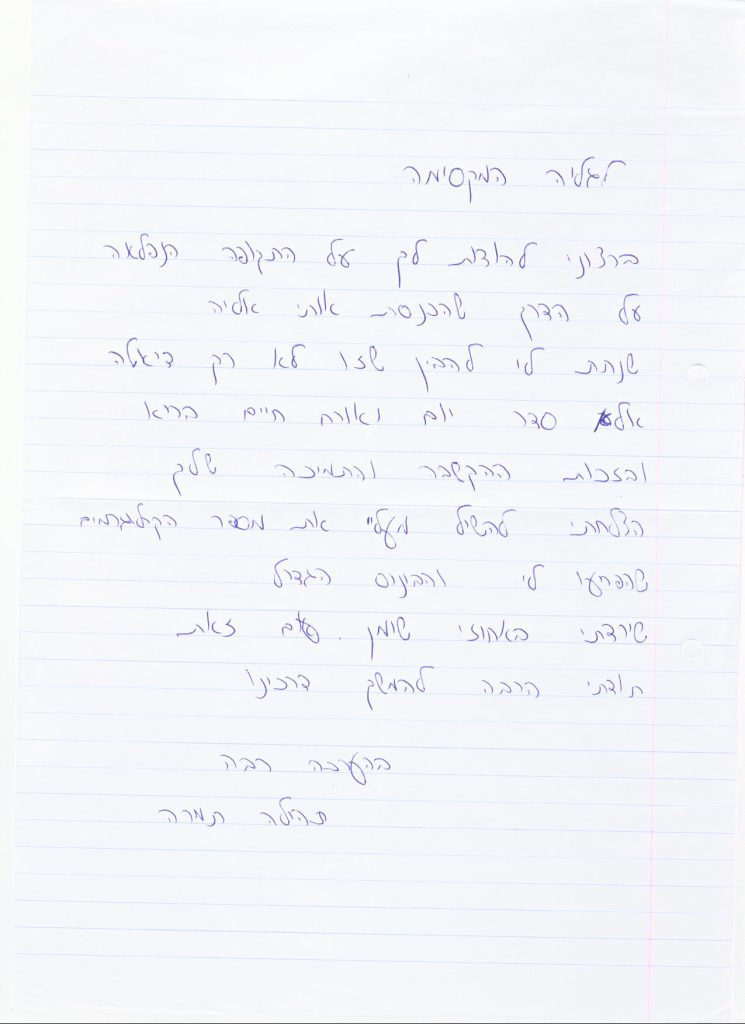 לגליה המקסימה
ברצוני להודות לך על התקופה הנפלאה
על הדרך שהכנסת אותי אליה
שנתת לי להבין שזו לא רק דיאטה
אלא סדר יום ואורח חיים בריא
ובזכות ההקשבה והתמיכה שלך
הצלחתי להשיל מעליי את מספר הקילוגרמים
שהפריעו לי והבונוס הגדול
שירדתי באחוזי שומן. עם זאת
תודתי הרבה להמשך דרכינו
בהערכה רבה
תהילה תמירה